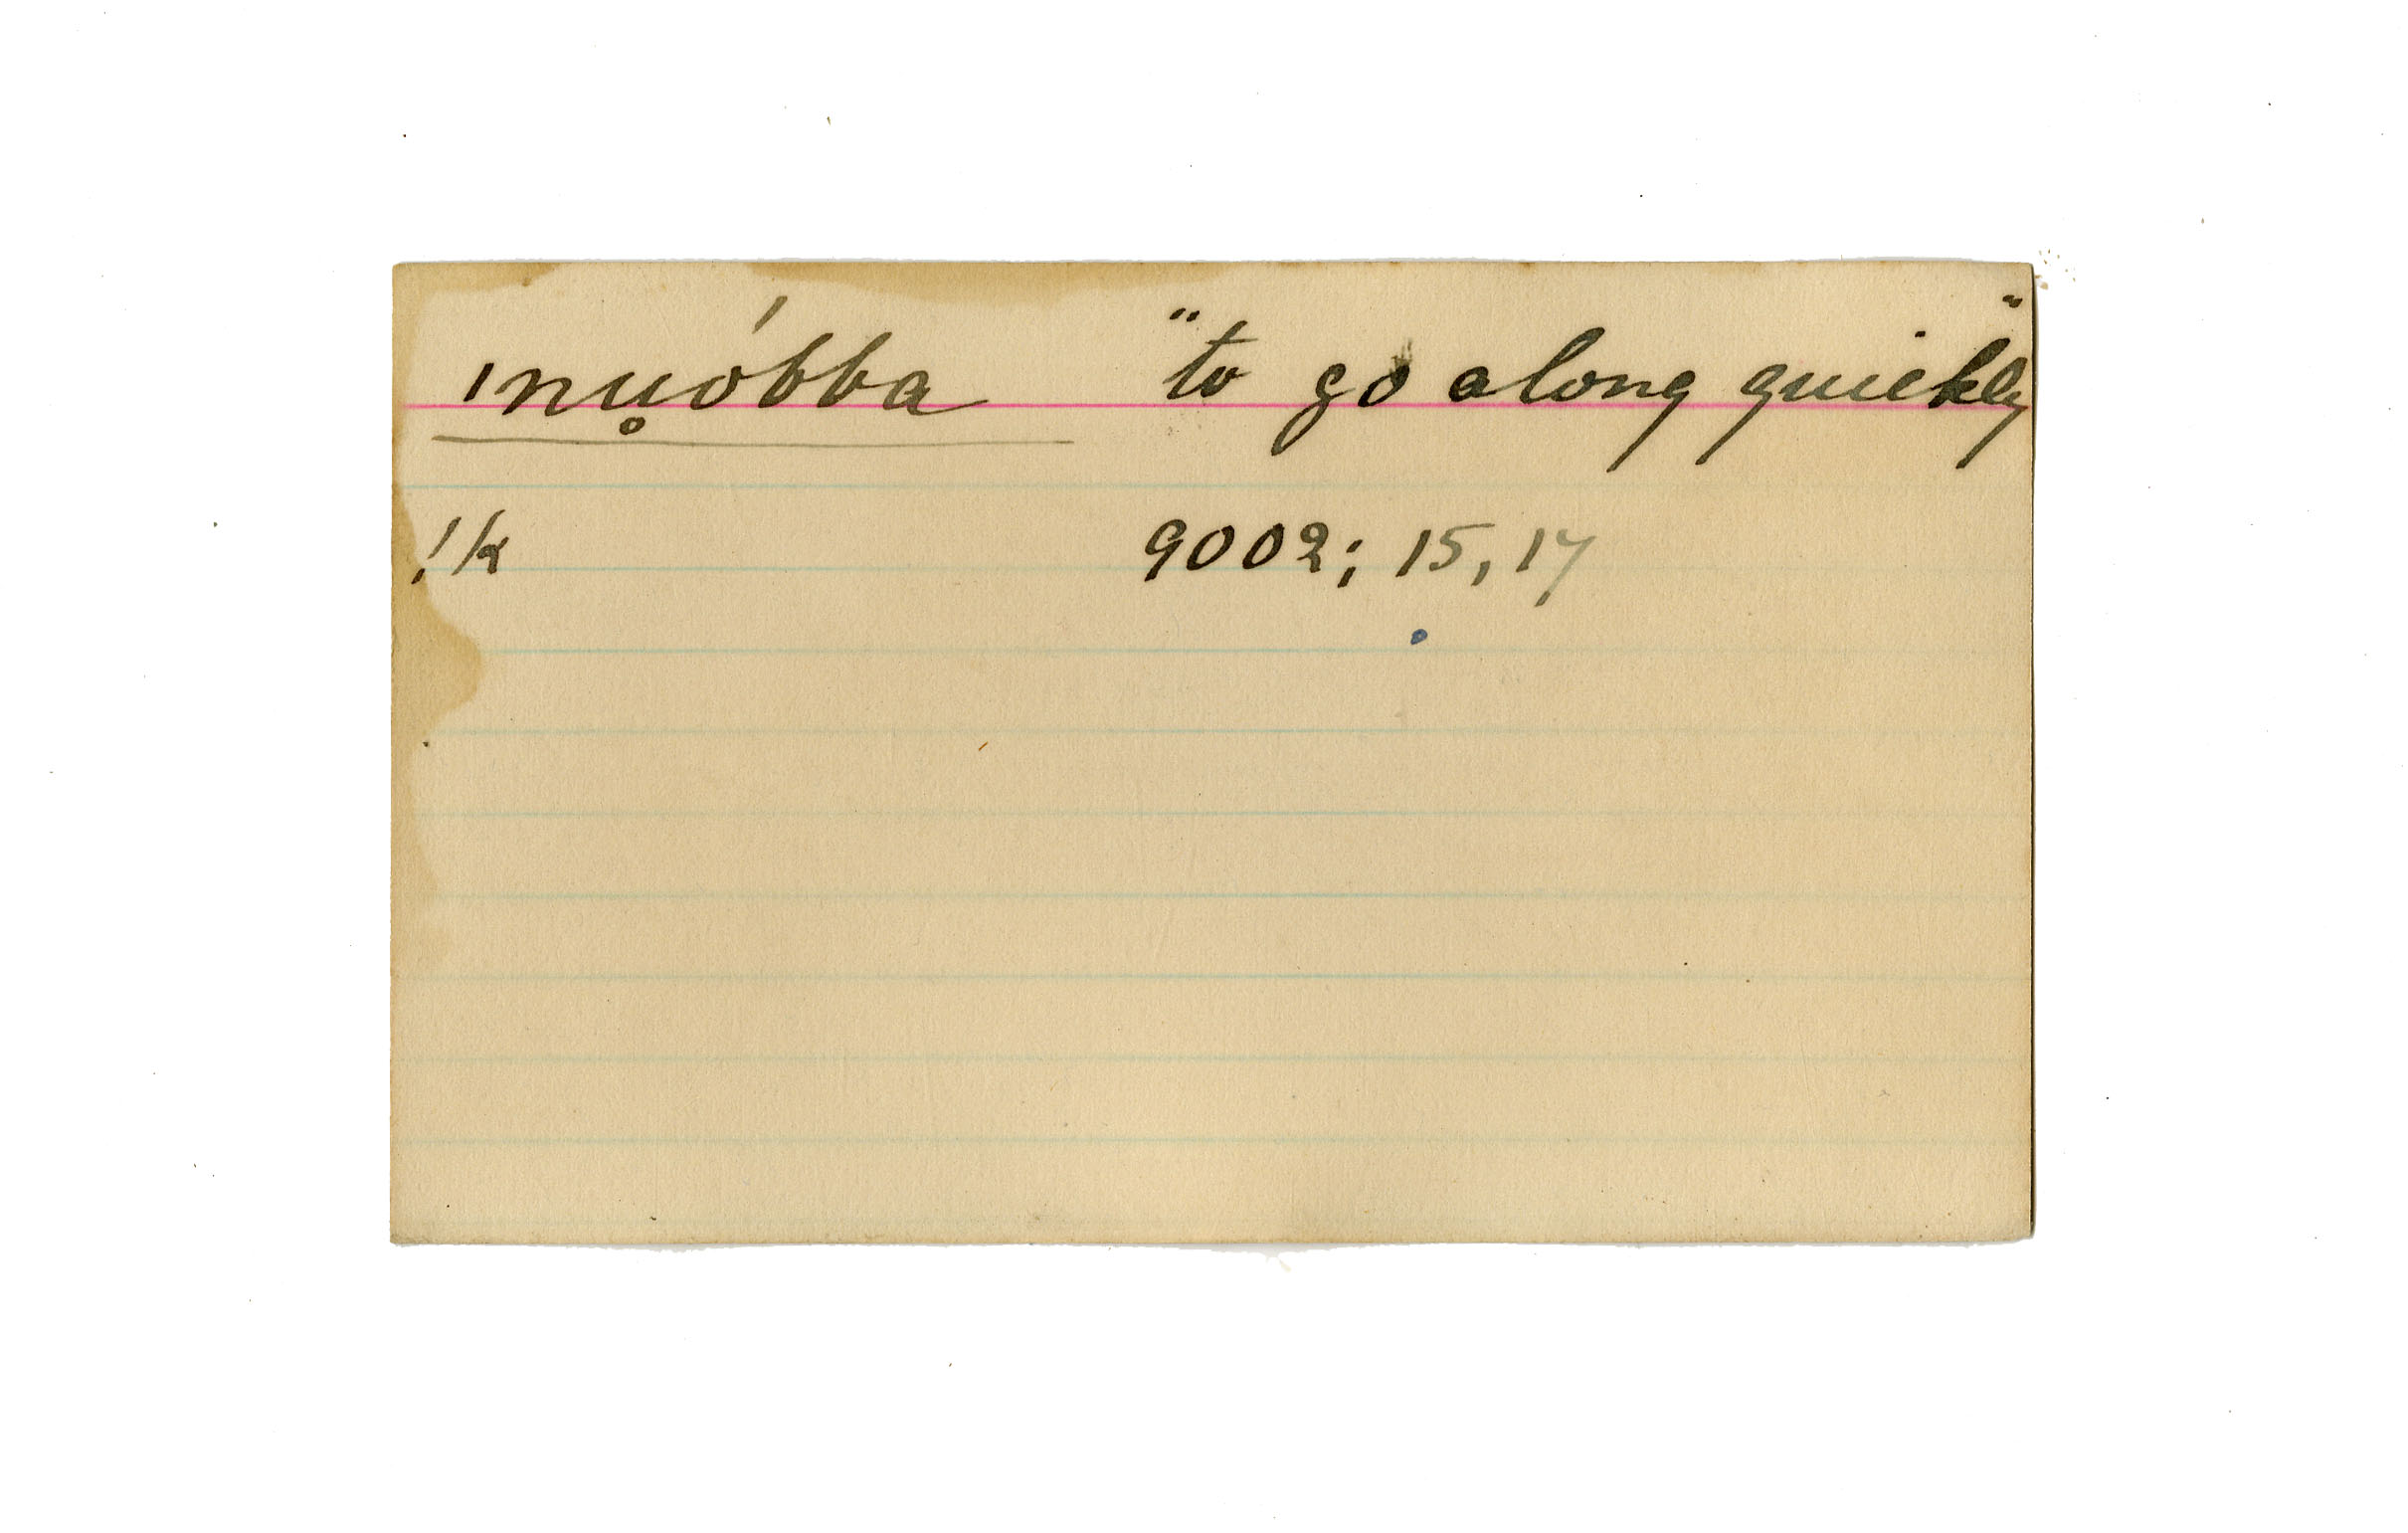 ınu̥óbba "to go along quickly"
!k 9002; 15, 17